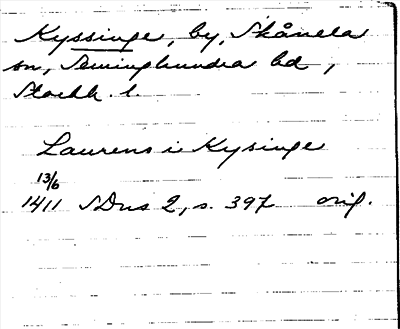 Kyssinge, by, Skånela
sn, Seminghundra hd,
Stockh. l.
Laurens i Kysinge
13/6
1411 SDns 2, s. 397 orig.